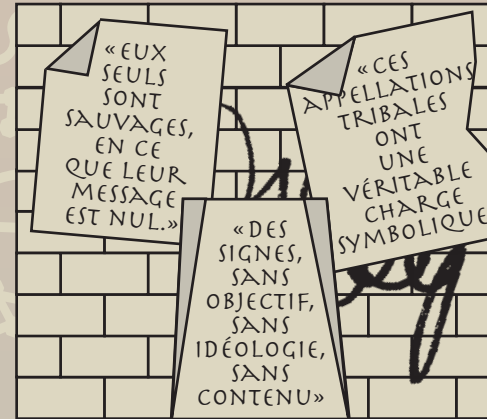 « EUX
SEULS
SONT
SAUVAGES,
EN CE
QUE LEUR
MESSAGE
EST NUL.»
« CES
APPELLATIONS
TRIBALES
ONT
UNE
VÉRITABLE
CHARGE
SYMBOLIQUE
« DES
SIGNES,
SANS
OBJECTIF,
SANS
IDÉOLOGIE,
SANS
CONTENU»